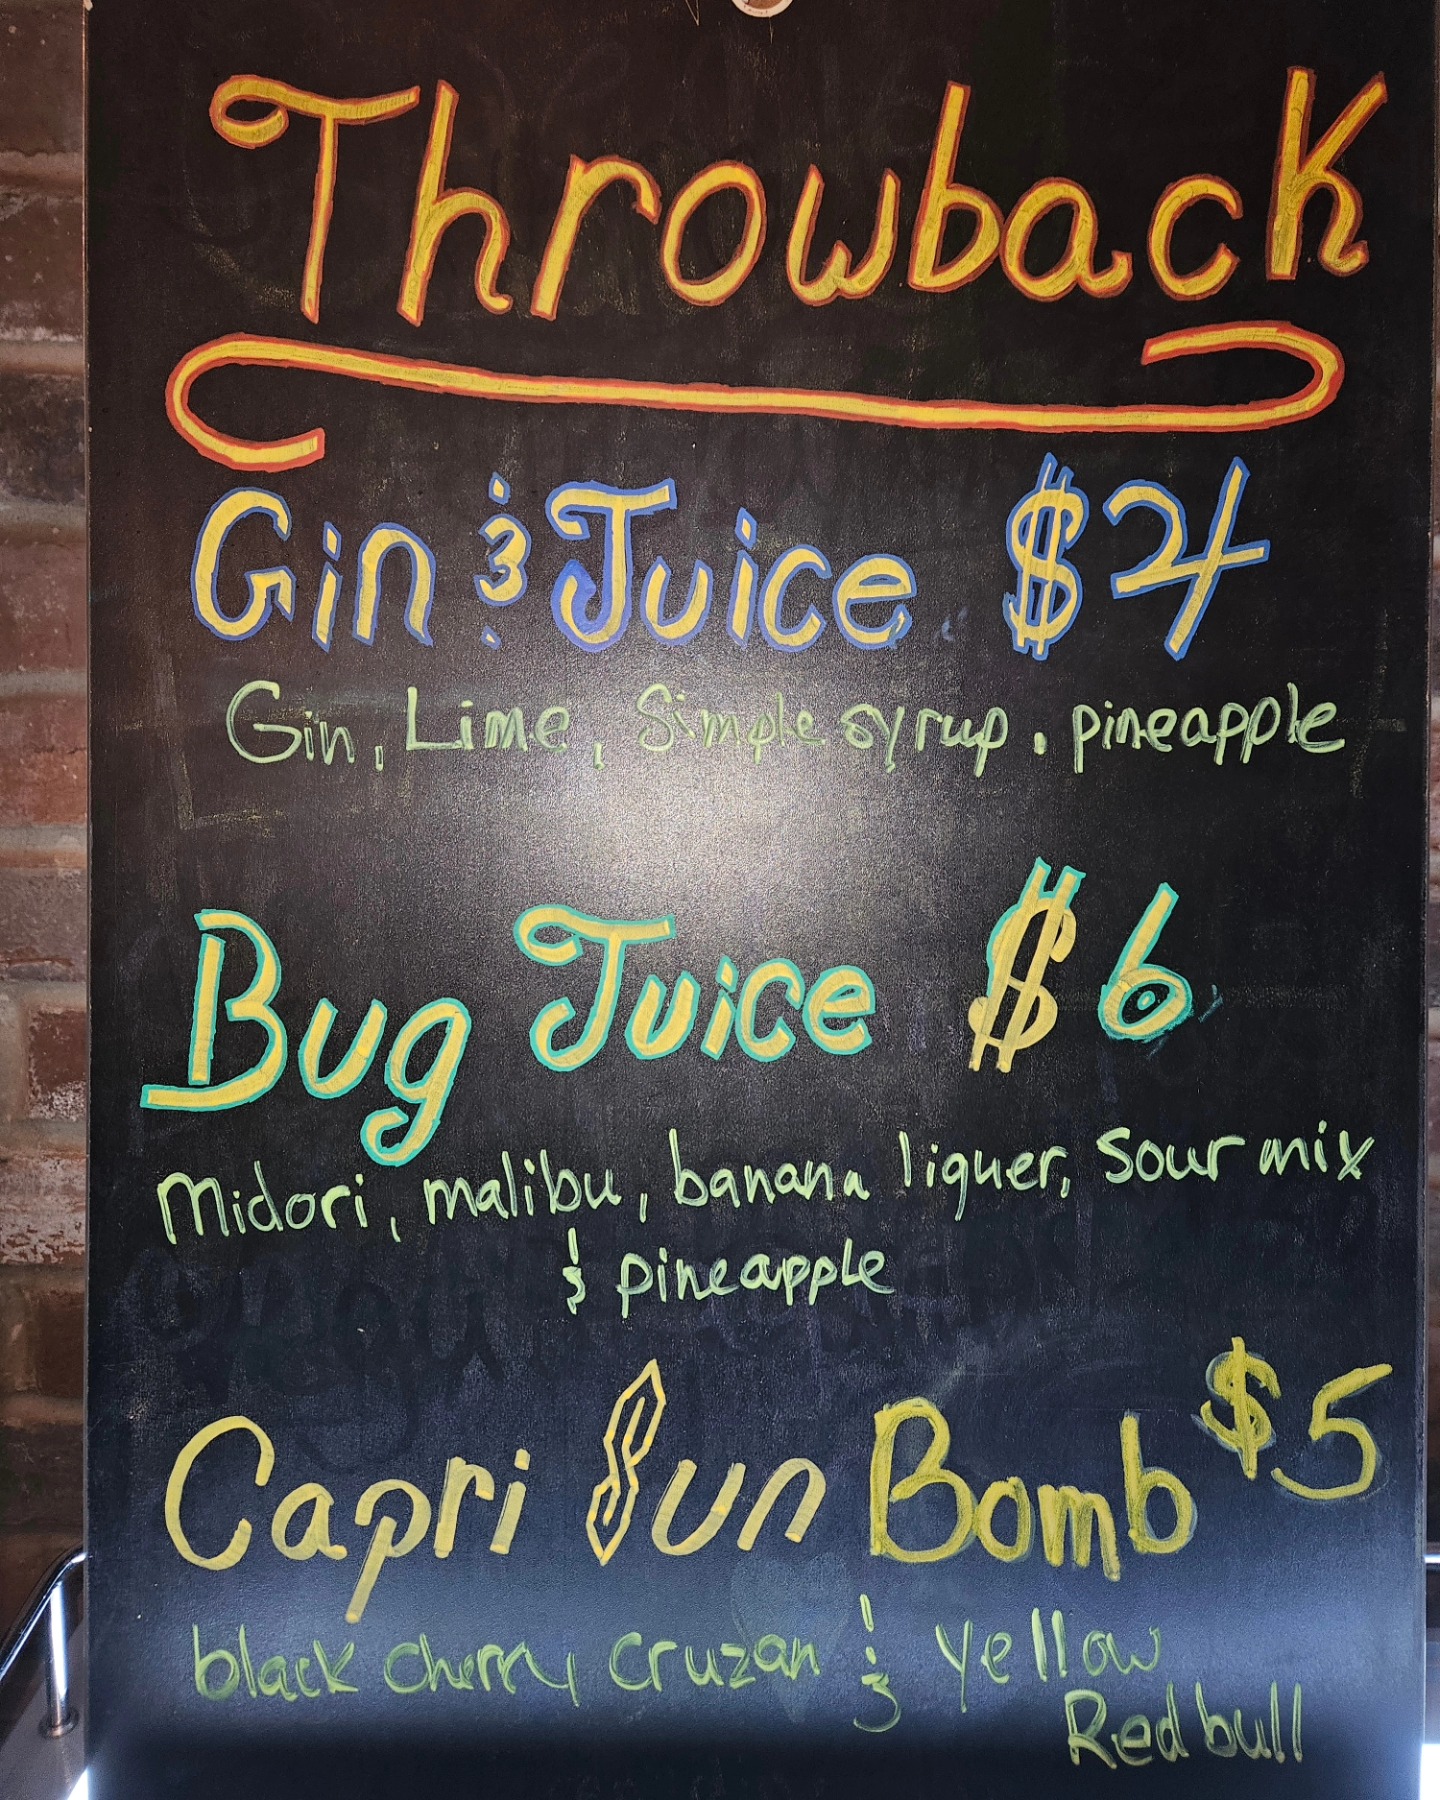 Throwback
Gin & Juice $4
Gin, Lime, Simple syrup, pineapple
Bug Juice $6
Midori, malibu, banana liquer, sour mix
& pineapple
Capri Sun Bomb $5
black cherry cruzan & yellow
Red bull